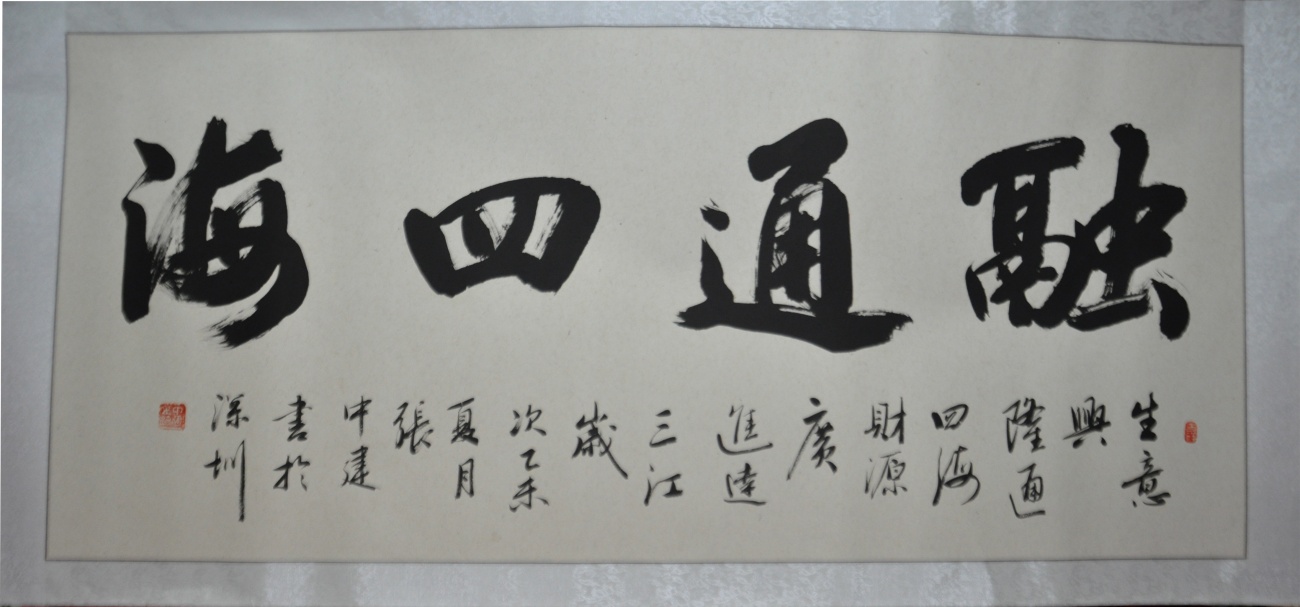 融通四海
生意
興
隆通
四海
財源
廣
進達
三江
歲
次乙未
夏月
張
中建
書於
深圳